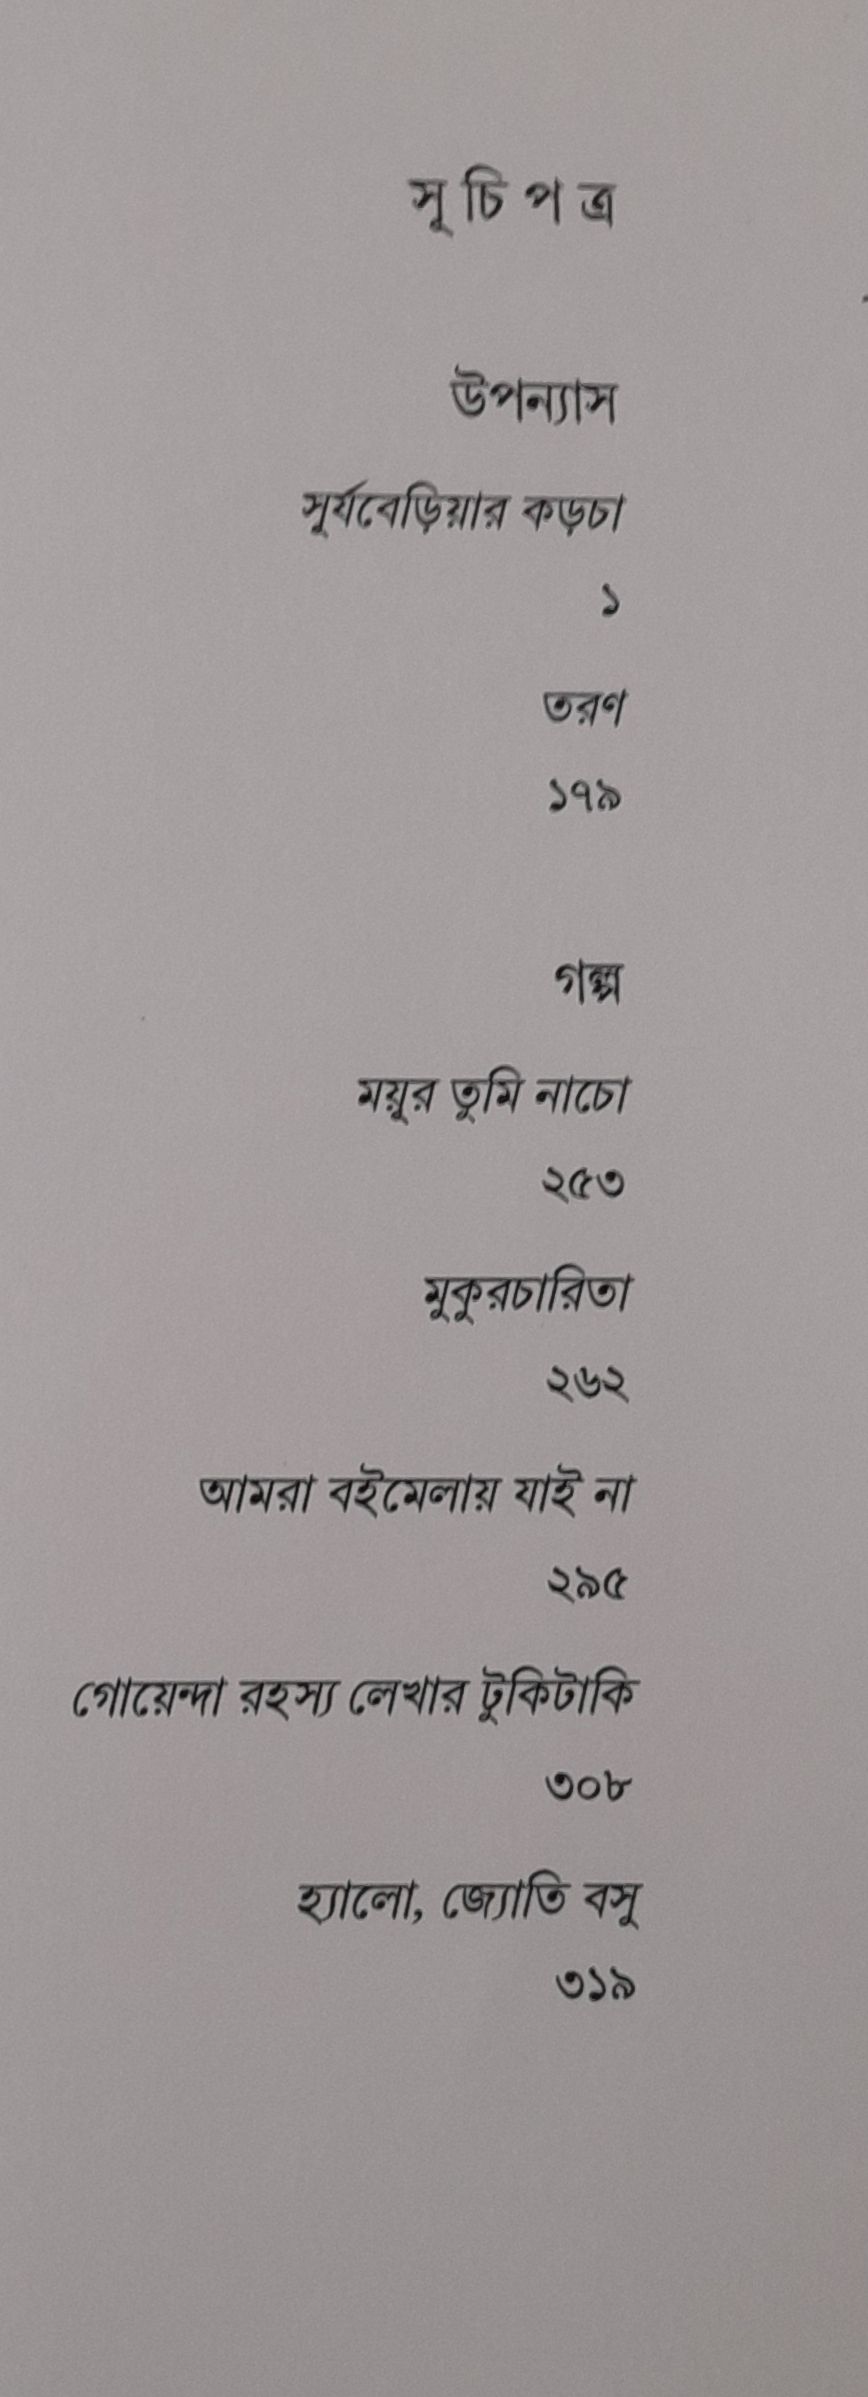 সূ চি প ত্র
উপন্যাস
সূর্যবেড়িয়ার কড়চা
১
তরণ
১৭৯
গল্প
ময়ূর তুমি নাচো
২৫৩
মুকুরচারিতা
২৬২
আমরা বইমেলায় যাই না
২৯৫
গোয়েন্দা রহস্য লেখার টুকিটাকি
৩০৮
হ্যালো, জ্যোতি বসু
৩১৯